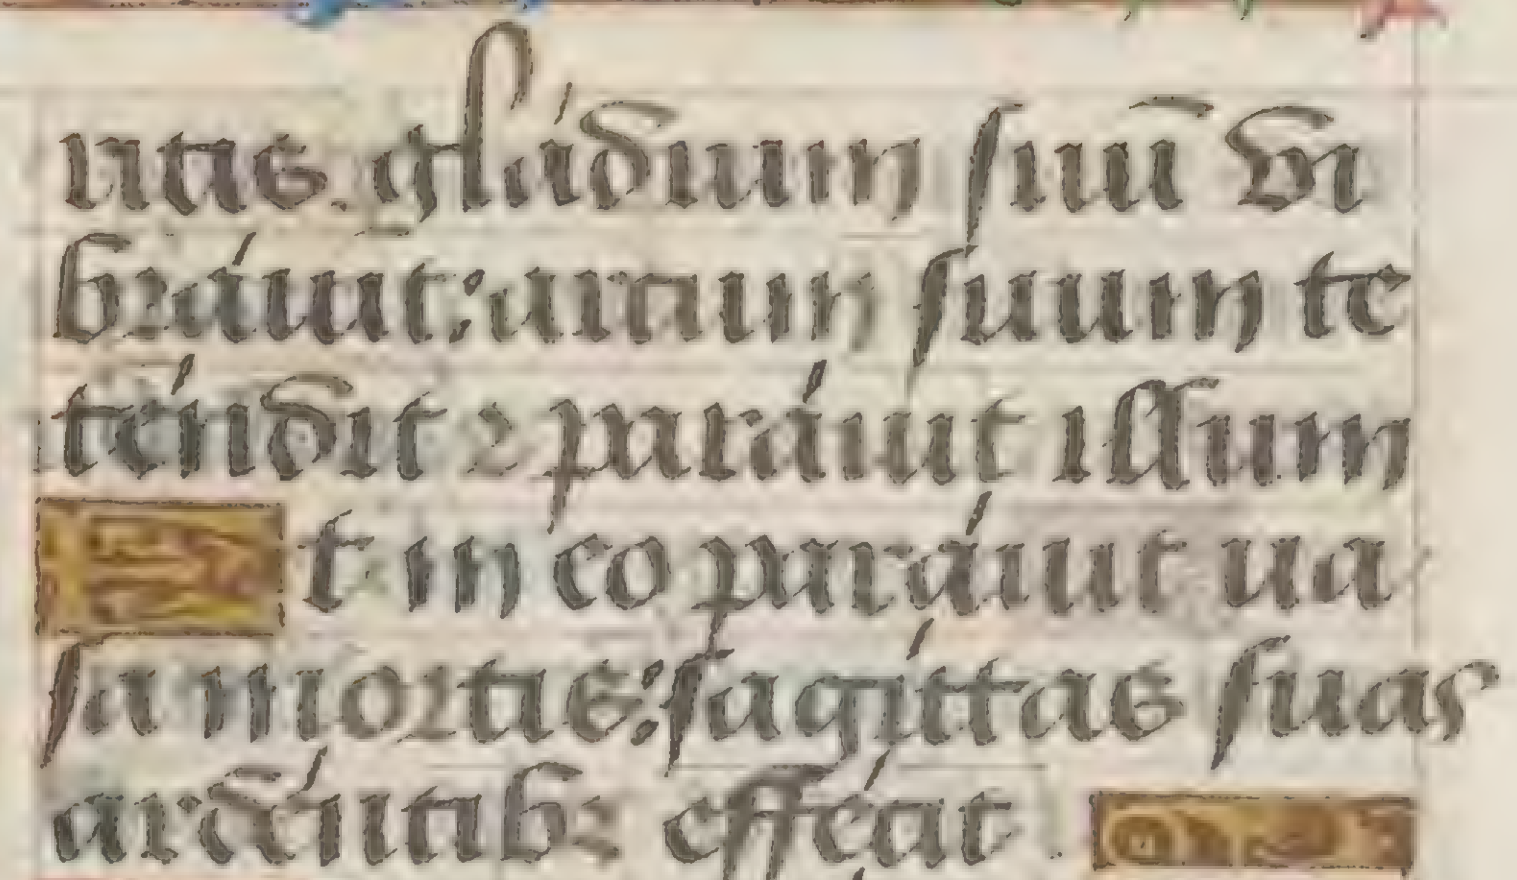 utis. gládium suū vi
bráuit: arcum suum te
téndit ⁊ paráuit illum
Et in eo paráuit ua
sa mortis: sagíttas suas
ardéntibꝫ effécit.